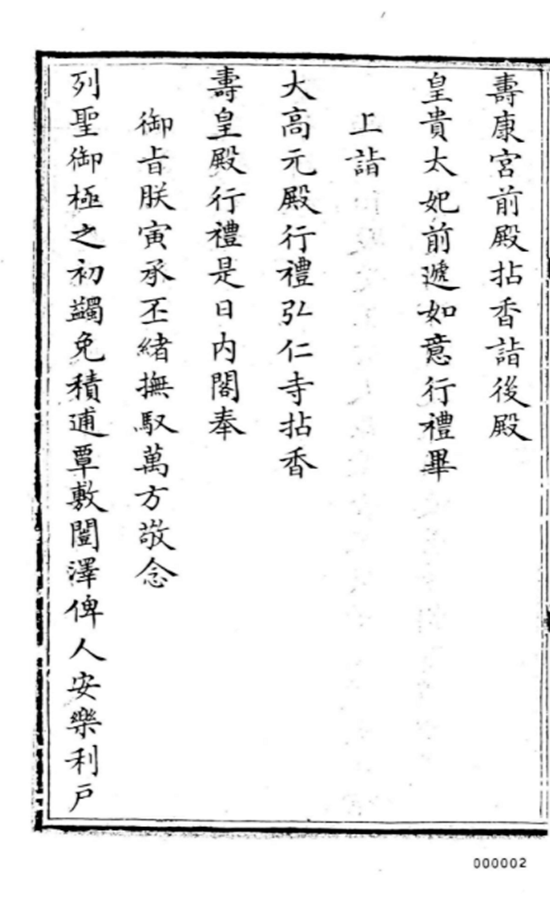 壽康宮前殿拈香詣後殿
皇貴太妃前遞如意行禮畢
上詣
大高元殿行禮弘仁寺拈香
壽皇殿行禮是日內閣奉
御旨朕寅承丕緒撫馭萬方敬念
列聖御極之初蠲免積逋覃敷闓澤俾人安樂利戶
000002